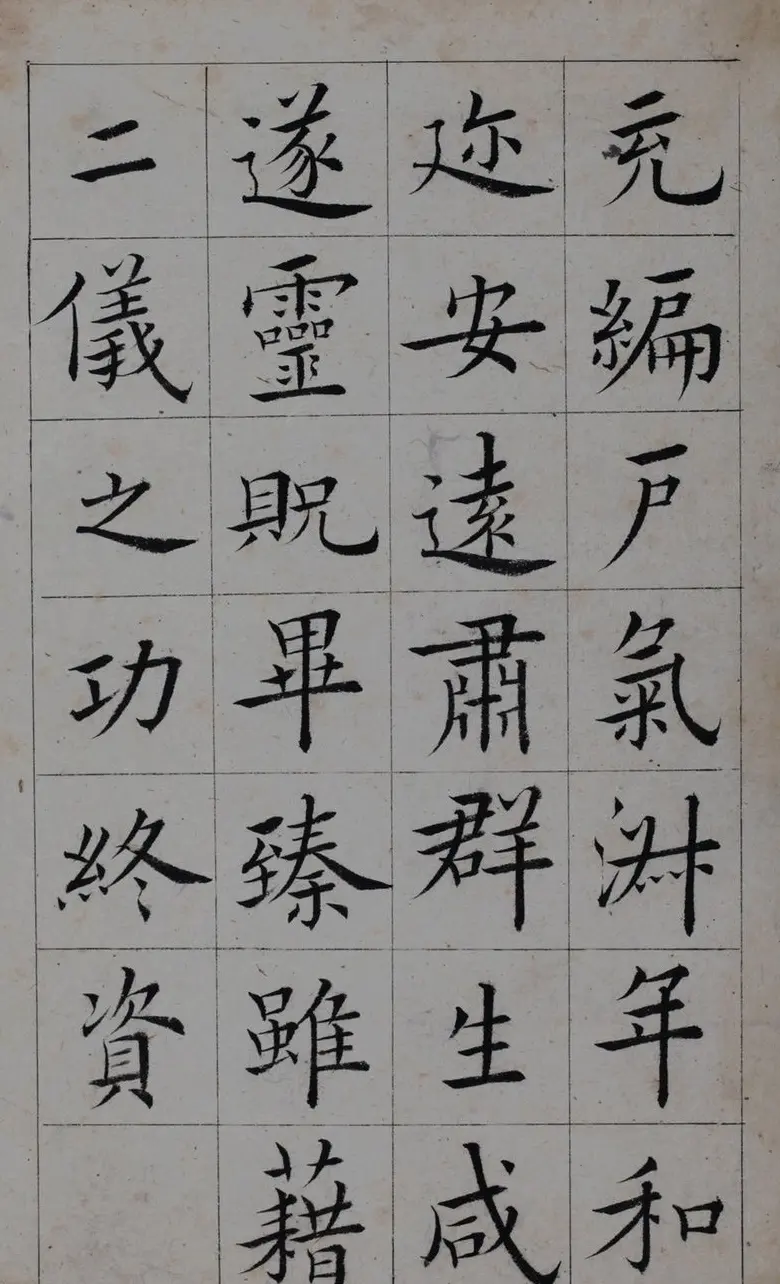 充編戸氣淑年和
迩安遠肅群生咸
遂靈貺畢臻雖藉
二儀之功終資